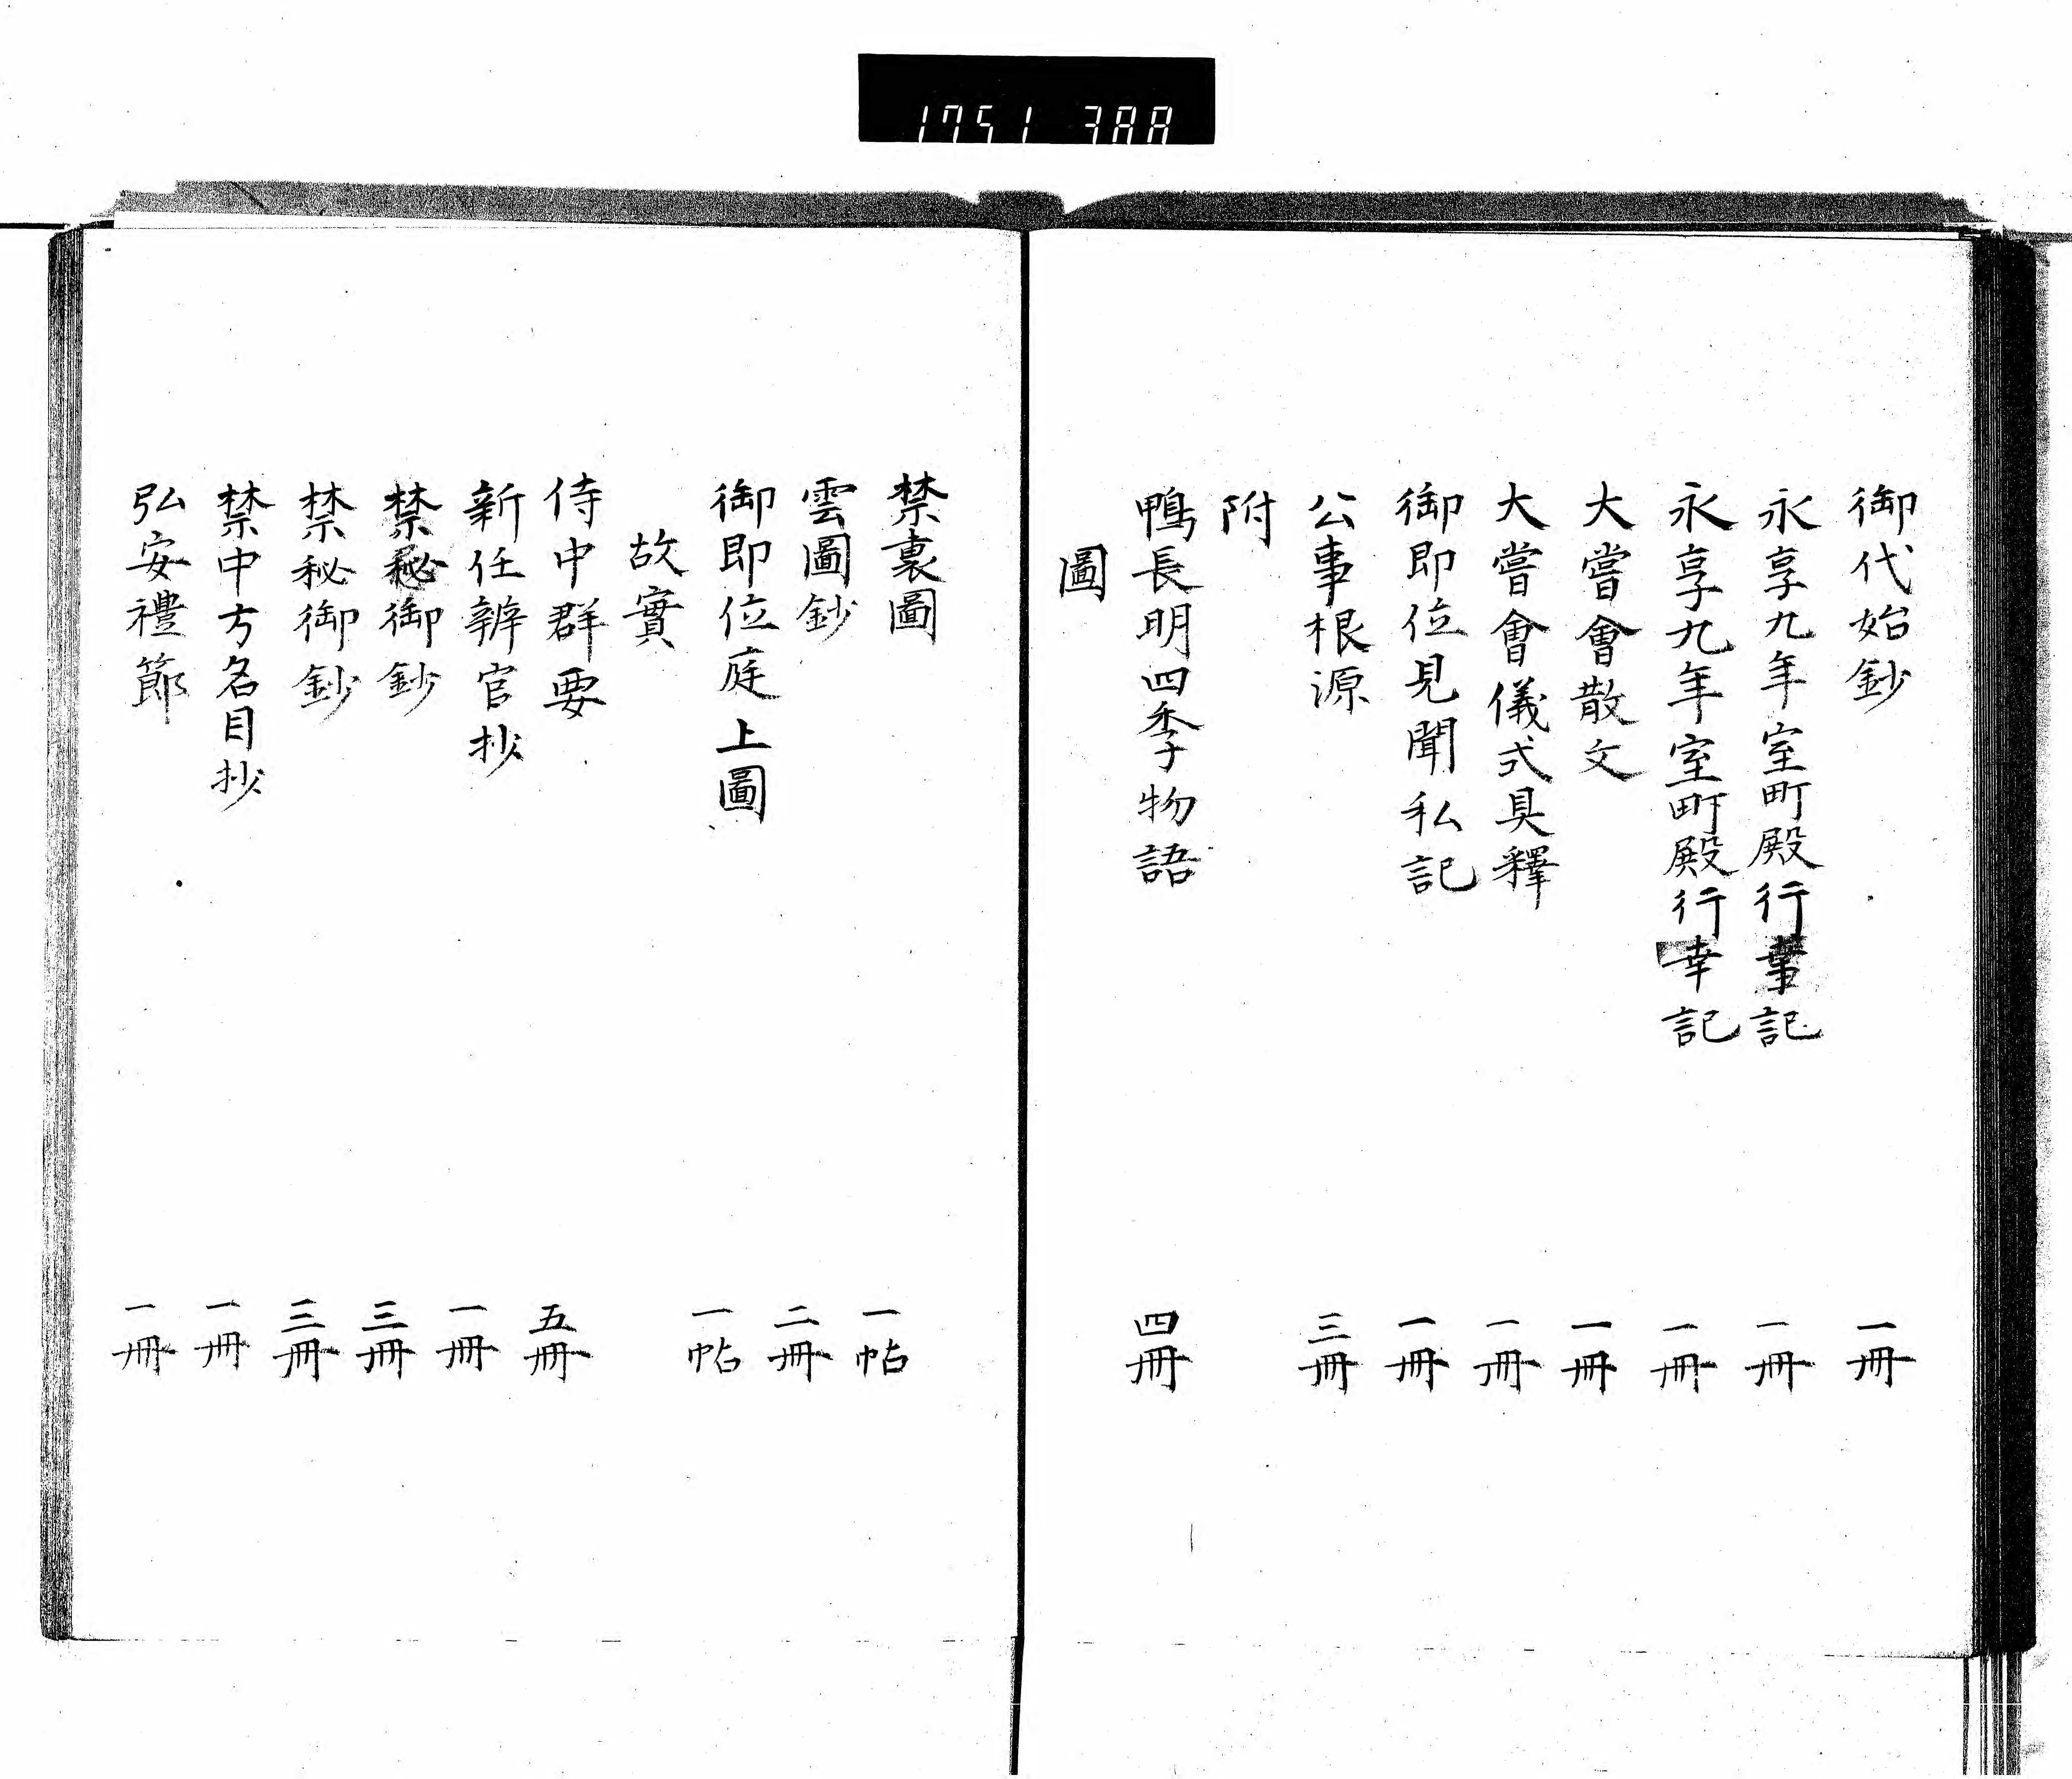 1751 388
御代始鈔 一冊
永享九年室町殿行幸記 一冊
永享九年室町殿行幸記 一冊
大嘗會散文 一冊
大嘗會儀式具釋 一冊
御即位見聞私記 一冊
公事根源 三冊
附
鴨長明四季物語 四冊
圖
禁裏圖 一帖
雲圖鈔 二冊
御即位庭上圖 一帖
故實
侍中群要 五冊
新任辨官抄 一冊
禁秘御鈔 三冊
禁秘御鈔 三冊
禁中方名目抄 一冊
弘安禮節 一冊